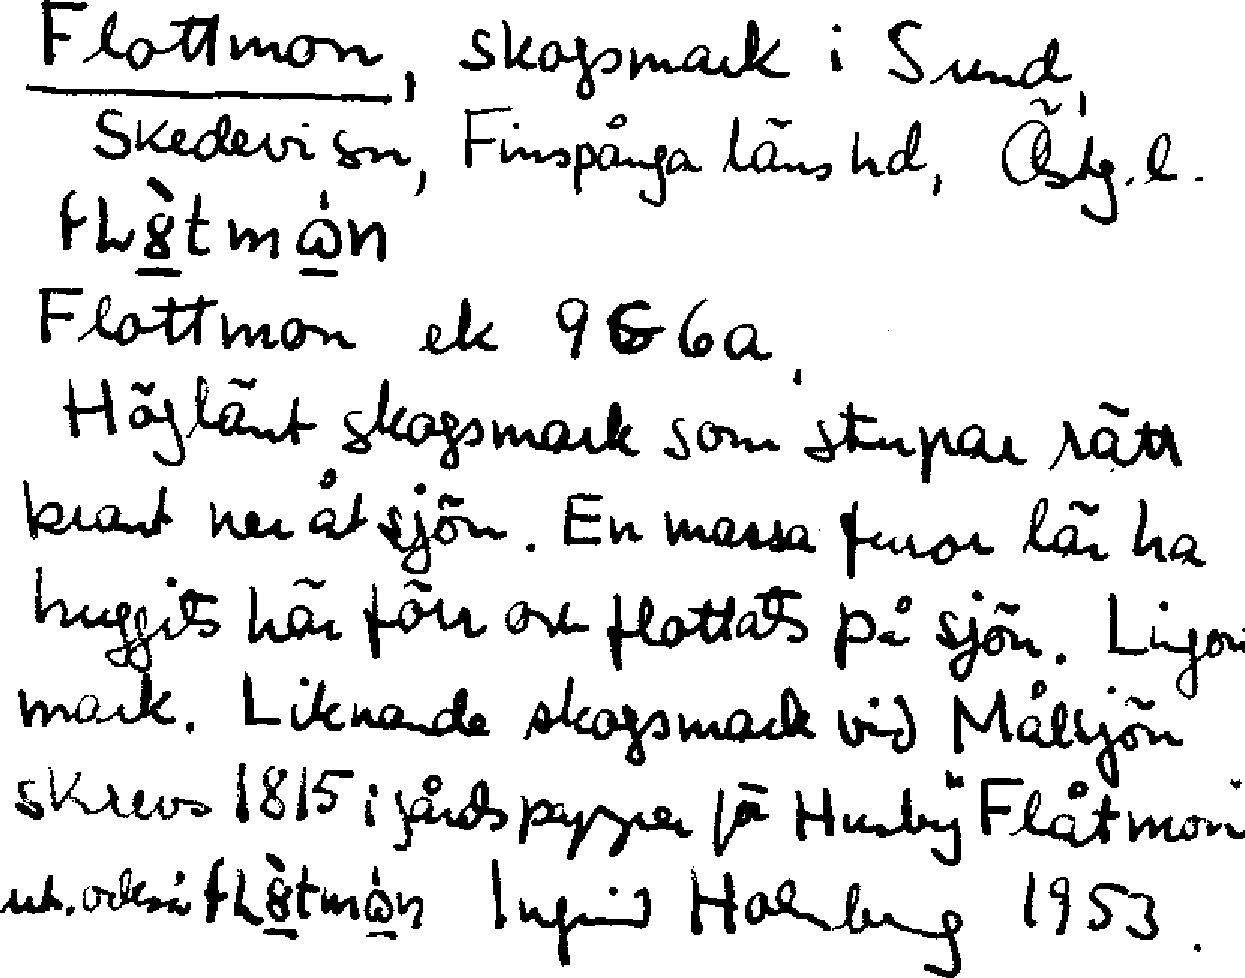 Flottmon, skogsmark i Sund,
Skedevi sn, Finspånga läns hd, Östg.l.
Flottmon ek 966a.
Höglänt skogsmark som stupar rätt
brant ner åt sjön. En massa furor lär ha
huggits här förr och flottats på sjön. Lingon
mark. Liknande skogsmark vid Målsjön
skrevs 1815 i gårdspapper på Husby "Flåtmon"
ut. också Ingrid Holmberg 1953.